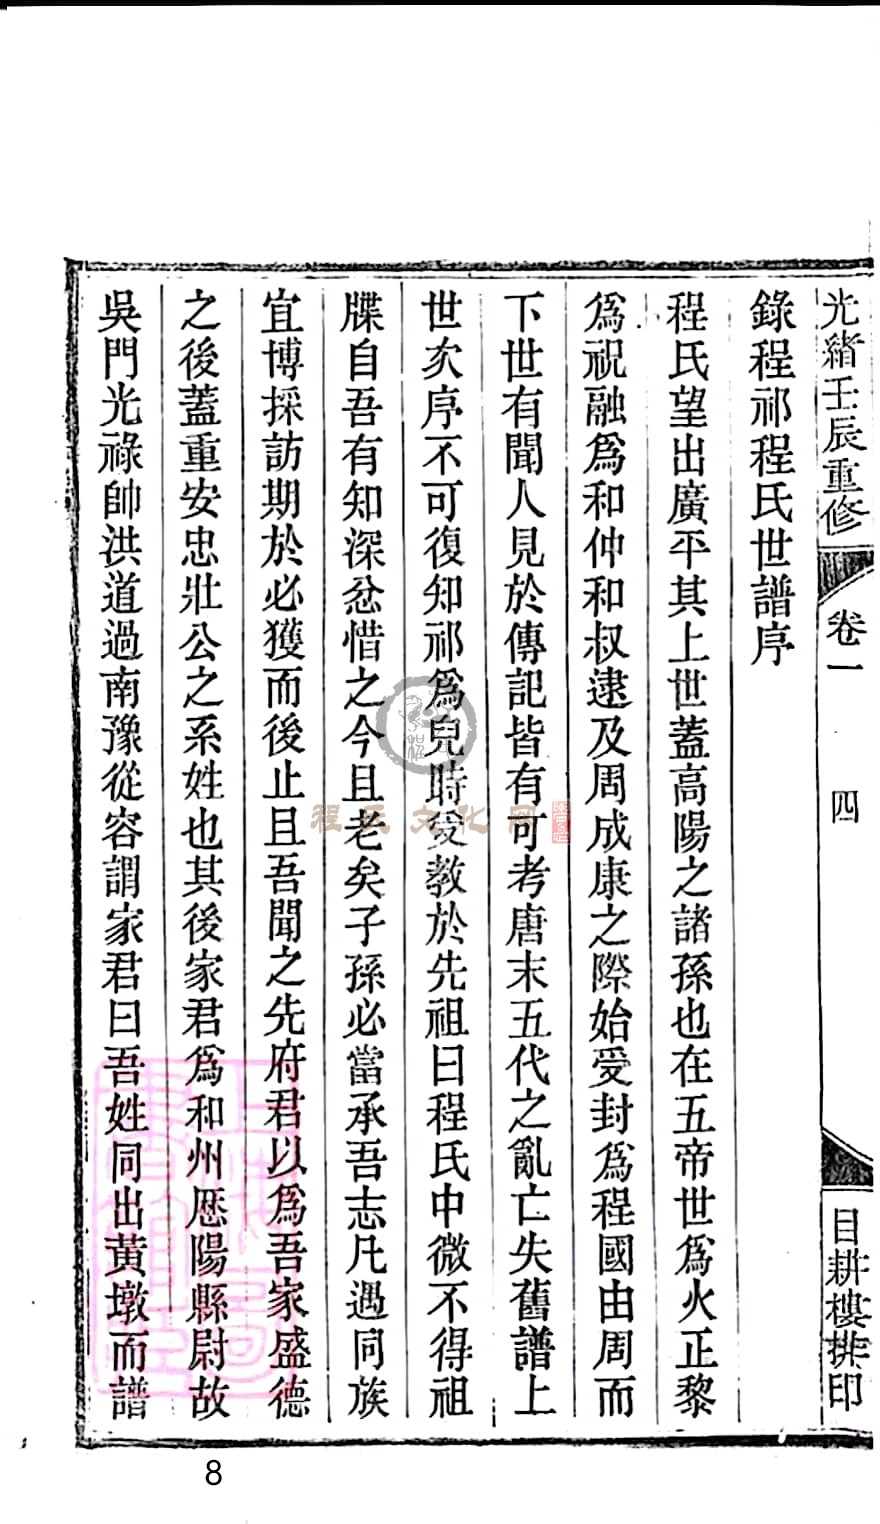 光緒壬辰重修
卷一
四
目耕樓排印
錄程祁程氏世譜序
程氏望出廣平其上世蓋高陽之諸孫也在五帝世爲火正黎
爲祝融爲和仲和叔逮及周成康之際始受封爲程國由周而
下世有聞人見於傳記皆有可考唐末五代之亂亡失舊譜上
世次序不可復知祁爲兒時受教於先祖曰程氏中微不得祖
牒自吾有知深忿惜之今且老矣子孫必當承吾志凡遇同族
宜博採訪期於必獲而後止且吾聞之先府君以爲吾家盛德
之後蓋重安忠壯公之系姓也其後家君爲和州歷陽縣尉故
吳門光祿帥洪道過南豫從容謂家君曰吾姓同出黃墩而譜
程氏文化网
8